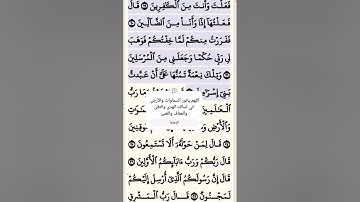 فَعَلْتَ وَأَنتَ مِنَ ٱلْكَٰفِرِينَ ۝ قَالَ
فَعَلْتُهَآ إِذًا وَأَنَا۠ مِنَ ٱلضَّآلِّينَ ۝
فَفَرَرْتُ مِنكُمْ لَمَّا خِفْتُكُمْ فَوَهَبَ
لِى رَبِّى حُكْمًا وَجَعَلَنِى مِنَ ٱلْمُرْسَلِينَ
وَتِلْكَ نِعْمَةٌ تَمُنُّهَا عَلَىَّ أَنْ عَبَّدتَّ
بَنِىٓ إِسْرَٰٓ
مَا رَبُّ
اللهم يا نور السماوات والأرض
إني أسألك الهدى والتقى
والعفاف والغنى
ٱلْعَٰلَمِينَ
وَٱلْأَرْضِ
مُّوقِنِينَ
قَالَ لِمَنْ حَوْلَهُۥٓ أَلَا تَسْتَمِعُونَ ۝
قَالَ رَبُّكُمْ وَرَبُّ ءَابَآئِكُمُ ٱلْأَوَّلِينَ ۝
قَالَ إِنَّ رَسُولَكُمُ ٱلَّذِىٓ أُرْسِلَ إِلَيْكُمْ
لَمَجْنُونٌ ۝ قَالَ رَبُّ ٱلْمَشْرِقِ